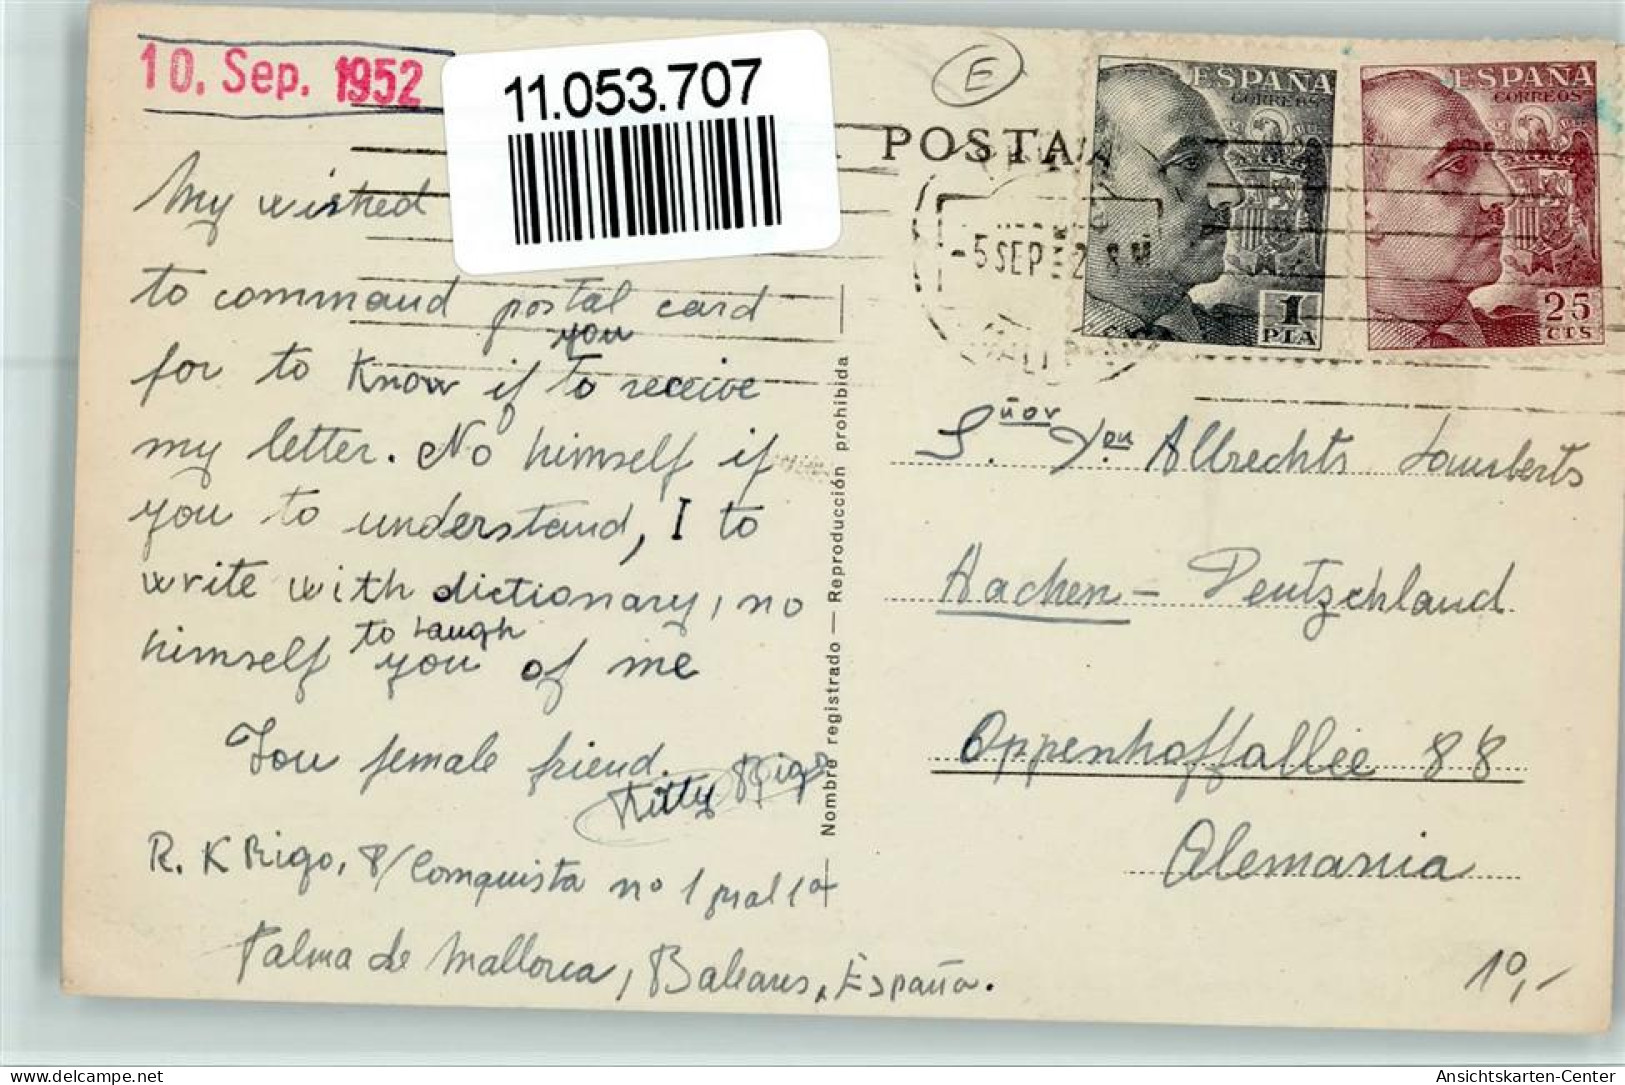 10. Sep. 1952
11.053.707
E
POSTA
ESPAÑA
CORREOS
1
PTA
ESPAÑA
CORREOS
25
CTS
-5 SEP 52 8 M
My wisked
to command postal card
you
for to Know if to receive
my letter. No himself if
you to understand, I to
write with dictionary, no
to laugh
himself you of me
You female friend.
Kitty Rigo
R. K Rigo, Conquista nº 1 pral 1ª
Palma de Mallorca, Baleares, España.
Nombre registrado — Reproducción prohibida
S.ñor Don Albrechts Lamberts
Aachen - Deutzchland.
Oppenhoffallee 88
Alemania
10,-
delcampe.net
Ansichtskarten-Center